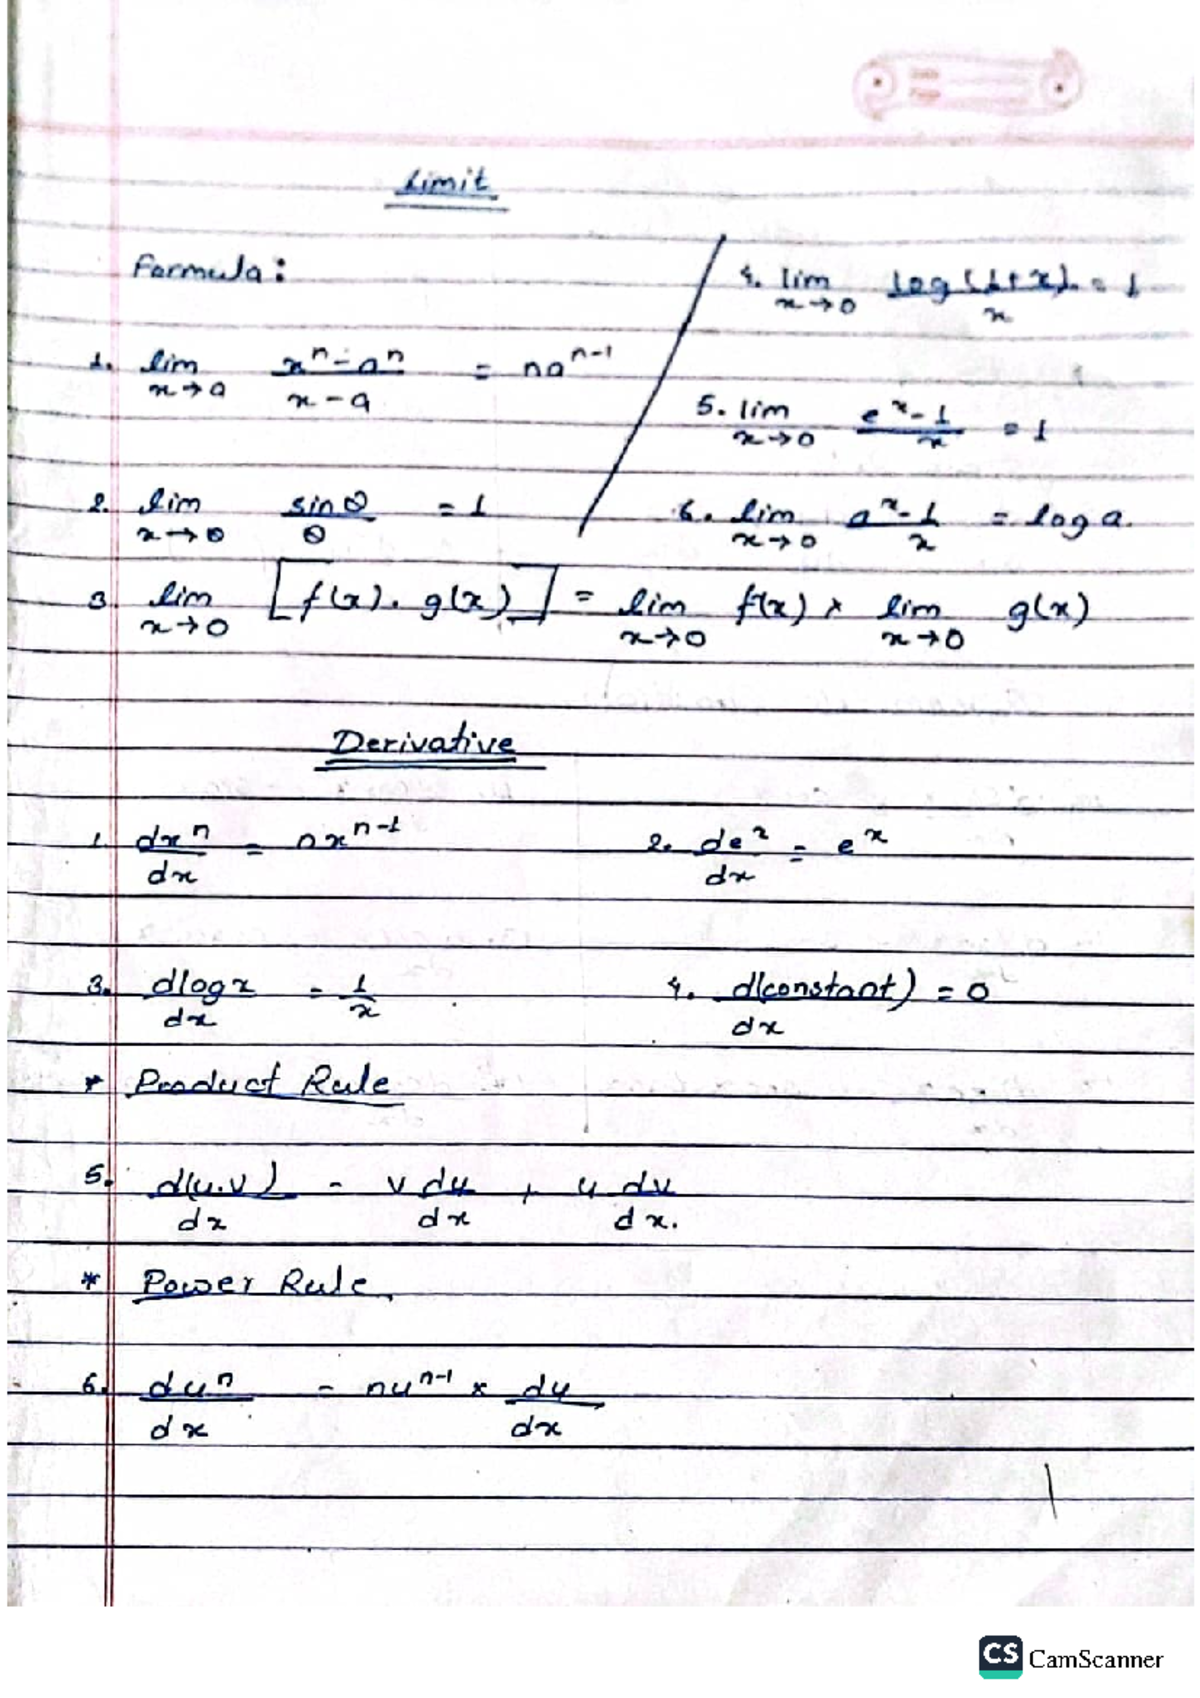 Limit
Formula:
1. lim x→a (xⁿ - aⁿ)/(x - a) = naⁿ⁻¹
2. lim x→0 sinθ/θ = 1
3. lim x→0 [f(x). g(x)] = lim x→0 f(x) × lim x→0 g(x)
4. lim x→0 log(1+x)/x = 1
5. lim x→0 (eˣ-1)/x = 1
6. lim x→0 (aˣ-1)/x = log a.
Derivative
1. dxⁿ/dx = nxⁿ⁻¹ 2. deˣ/dx = eˣ
3. dlogx/dx = 1/x 4. d(constant)/dx = 0
* Product Rule
5. d(u.v)/dx = v du/dx + u dv/dx.
* Power Rule.
6. duⁿ/dx = nuⁿ⁻¹ × du/dx
CS CamScanner